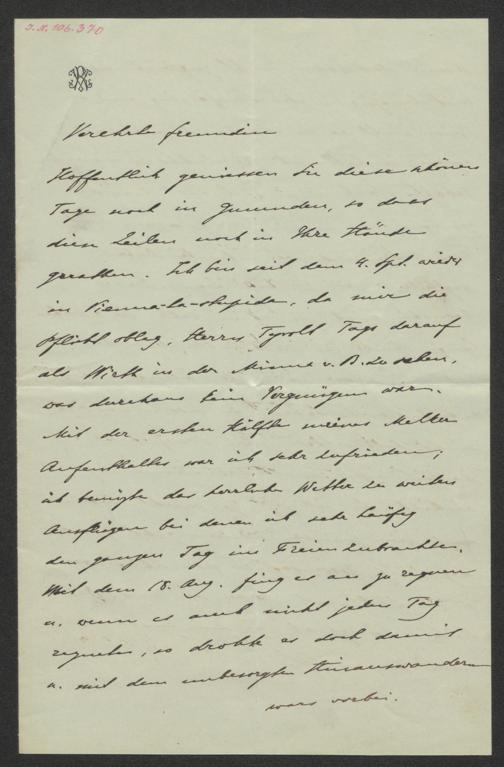 J.N. 106.370
Verehrte Freundin
Hoffentlich geniessen Sie diese schönen
Tage noch in Gmunden, so dass
diese Zeilen noch in Ihre Hände
gerathen. Ich bin seit dem 4. Spt. wieder
in Vienna-la-stupida, da mir die
Pflicht oblag, Herrn Tyrolt Tags darauf
als Wirth in der Minna v. B. zu sehen,
was durchaus kein Vergnügen war.
Mit der ersten Hälfte meines Melker
Aufenthaltes war ich sehr zufrieden;
ich benützte das herrliche Wetter zu weiten
Ausflügen bei denen ich sehr häufig
den ganzen Tag im Freien zubrachte.
Mit dem 18. Aug. fing es an zu regnen
u. wenn es auch nicht jeden Tag
regnete, so drohte es doch damit
u. mit dem unbesorgten Hinauswandern
wars vorbei.